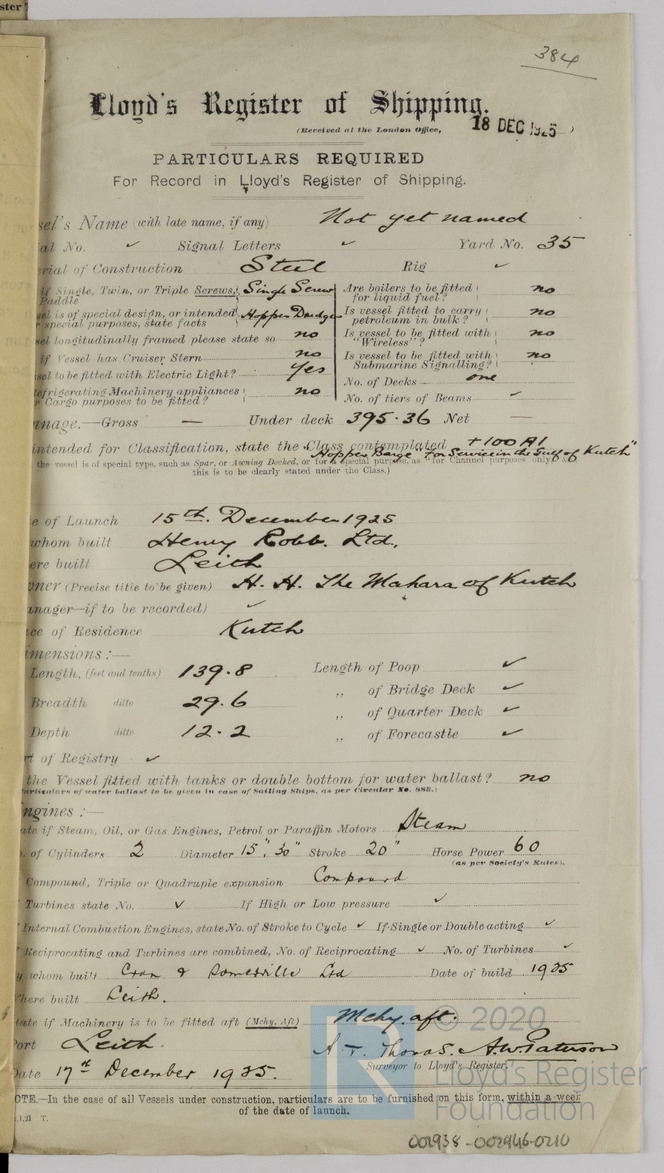 ster
384
Lloyd's Register of Shipping.
(Received at the London Office, 18 DEC 1925 )
PARTICULARS REQUIRED
For Record in Lloyd's Register of Shipping.
sel's Name (with late name, if any) Not yet named
ial No. ✓ Signal Letters ✓ Yard No. 35
rial of Construction Steel Rig ✓
if Single, Twin, or Triple Screws, Single Screw Are boilers to be fitted no
Paddle for liquid fuel?
sel is of special design, or intended Hopper Dredger Is vessel fitted to carry no
r special purposes, state facts petroleum in bulk?
sel longitudinally framed please state so no Is vessel to be fitted with no
"Wireless"?
if Vessel has Cruiser Stern no Is vessel to be fitted with no
Submarine Signalling?
sel to be fitted with Electric Light? Yes No. of Decks one
efrigerating Machinery appliances no
r Cargo purposes to be fitted? No. of tiers of Beams ✓
nnage.—Gross — Under deck 395.36 Net —
intended for Classification, state the Class contemplated +100 A1
"Hopper Barge" "For Service in the Gulf of Kutch"
the vessel is of special type, such as Spar, or Awning Decked, or for a special purpose, as "for Channel purposes only"
this is to be clearly stated under the Class.)
e of Launch 15th. December 1925
whom built Henry Robb. Ltd.
ere built Leith
ner (Precise title to be given) H. H. The Mahara of Kutch
anager—if to be recorded) ✓
ce of Residence Kutch
imensions:—
Length, (feet and tenths) 139.8 Length of Poop ✓
Breadth ditto 29.6 ,, of Bridge Deck ✓
,, of Quarter Deck ✓
Depth ditto 12.2 ,, of Forecastle ✓
rt of Registry ✓
the Vessel fitted with tanks or double bottom for water ballast? no
articulars of water ballast to be given in case of Sailing Ships, as per Circular No. 885.)
ngines:—
ate if Steam, Oil, or Gas Engines, Petrol or Paraffin Motors Steam
. of Cylinders 2 Diameter 15", 30" Stroke 20" Horse Power 60
(as per Society's Rules).
Compound, Triple or Quadruple expansion Compound
Turbines state No. ✓ If High or Low pressure ✓
Internal Combustion Engines, state No. of Stroke to Cycle ✓ If Single or Double acting ✓
Reciprocating and Turbines are combined, No. of Reciprocating ✓ No. of Turbines ✓
y whom built Cran & Somerville Ltd Date of build 1925
here built Leith.
tate if Machinery is to be fitted aft (Mchy. Aft) Mchy. aft.
Port Leith. A. T. Thomas. A. W. Paterson
Date 17th December 1925. Surveyor to Lloyd's Register.
OTE.—In the case of all Vessels under construction, particulars are to be furnished on this form, within a week
of the date of launch.
.1.21 T.
© 2020
Lloyd's Register
Foundation
002938-002946-0210